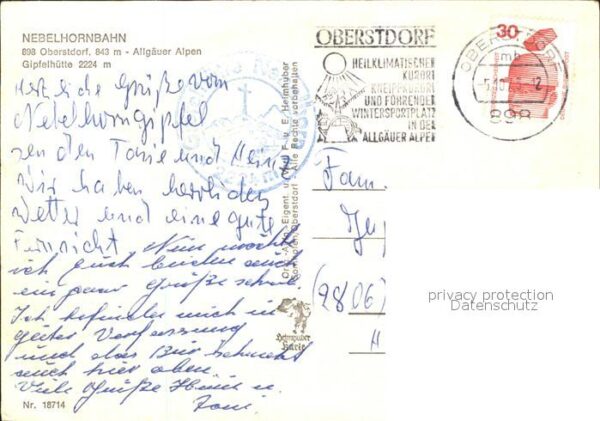 NEBELHORNBAHN
898 Oberstdorf, 843 m - Allgäuer Alpen
Gipfelhütte 2224 m
Herzliche Grüße vom
Nebelhorngipfel
senden Tanie und Heinz
Wir haben herrliches
Wetter und eine gute
Fernsicht Nun möchte
ich Euch beiden auch
ein paar Grüße schreib.
Ich befinde mich in
guter Verfassung
und das Bier schmeckt
auch hier oben.
Viele Grüße Heini u.
Toni.
Nr. 18714
Orig.-Aufn. Eigent. u. Verl. F. u. E. Heimhuber
Sonthofen/Oberstdorf - Alle Rechte vorbehalten
Heimhuber
Karte
OBERSTDORF
HEILKLIMATISCHER
KURORT
KNEIPPKURORT
UND FÜHRENDER
WINTERSPORTPLATZ
IN DEN
ALLGÄUER ALPEN
OBERSTDORF
mb
898
30
Fam.
(2806)
privacy protection
Datenschutz